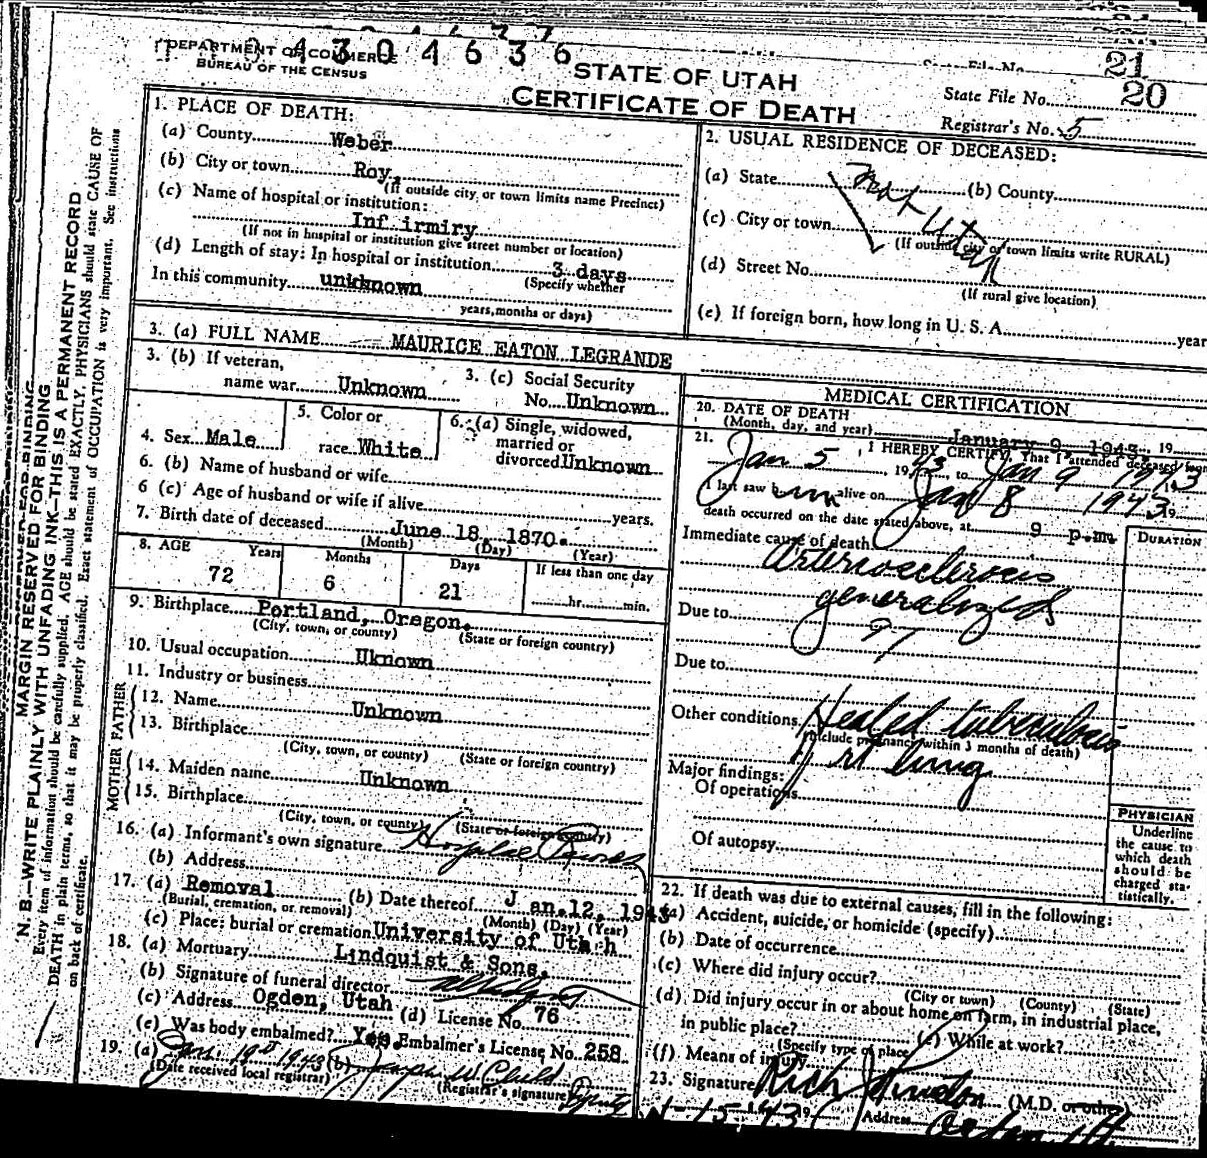 DEPARTMENT OF COMMERCE
BUREAU OF THE CENSUS
43 0 4 6 3 6
STATE OF UTAH
CERTIFICATE OF DEATH
State File No. 21
State File No. 20
Registrar's No. 5
MARGIN RESERVED FOR BINDING
N. B.—WRITE PLAINLY WITH UNFADING INK—THIS IS A PERMANENT RECORD
Every item of information should be carefully supplied. AGE should be stated EXACTLY. PHYSICIANS should state CAUSE OF
DEATH in plain terms, so that it may be properly classified. Exact statement of OCCUPATION is very important. See instructions
on back of certificate.
1. PLACE OF DEATH:
(a) County Weber
(b) City or town Roy,
(If outside city or town limits name Precinct)
(c) Name of hospital or institution:
Inf irmiry
(If not in hospital or institution give street number or location)
(d) Length of stay: In hospital or institution 3 days
(Specify whether
In this community unkknown
years, months or days)
2. USUAL RESIDENCE OF DECEASED:
(a) State (b) County
Not Utah
(c) City or town
(If outside city or town limits write RURAL)
(d) Street No.
(If rural give location)
(e) If foreign born, how long in U. S. A. year
3. (a) FULL NAME MAURICE EATON LEGRANDE
3. (b) If veteran,
name war Unknown
3. (c) Social Security
No. Unknown
4. Sex Male
5. Color or
race White
6. (a) Single, widowed,
married or
divorced Unknown
6. (b) Name of husband or wife
6 (c) Age of husband or wife if alive years.
7. Birth date of deceased June 18, 1870.
(Month) (Day) (Year)
8. AGE Years Months Days If less than one day
72 6 21 hr. min.
9. Birthplace Portland, Oregon.
(City, town, or county) (State or foreign country)
10. Usual occupation Uknown
11. Industry or business
FATHER
12. Name Unknown
13. Birthplace
(City, town, or county) (State or foreign country)
MOTHER
14. Maiden name Unknown
15. Birthplace
(City, town, or county) (State or foreign country)
16. (a) Informant's own signature Hospital Records
(b) Address
17. (a) Removal (b) Date thereof J an.12, 1943
(Burial, cremation, or removal) (Month) (Day) (Year)
(c) Place: burial or cremation University of Utah
18. (a) Mortuary Lindquist & Sons.
(b) Signature of funeral director
(c) Address Ogden, Utah (d) License No. 76
(e) Was body embalmed? Yes. Embalmer's License No. 258
19. (a) Jan. 19 1943 (b) Joseph W Child
(Date received local registrar) (Registrar's signature) Deputy
MEDICAL CERTIFICATION
20. DATE OF DEATH
(Month, day, and year) January 9 1943. 19
21. I HEREBY CERTIFY, That I attended deceased from
Jan 5 1943 to Jan 9 1943
I last saw him alive on Jan 8 1943 19
death occurred on the date stated above, at 9 p.m.
DURATION
Immediate cause of death
Arteriosclerosis
generalized
Due to
97
Due to
Other conditions Healed tuberculosis
(Include pregnancy within 3 months of death)
of rt lung
Major findings:
Of operations
Of autopsy
PHYSICIAN
Underline
the cause to
which death
should be
charged sta-
tistically.
22. If death was due to external causes, fill in the following:
(a) Accident, suicide, or homicide (specify)
(b) Date of occurrence
(c) Where did injury occur?
(City or town) (County) (State)
(d) Did injury occur in or about home on farm, in industrial place,
in public place?
(Specify type of place) (e) While at work?
(f) Means of injury
23. Signature Rich (M.D. or other)
1-15-43 19 Address